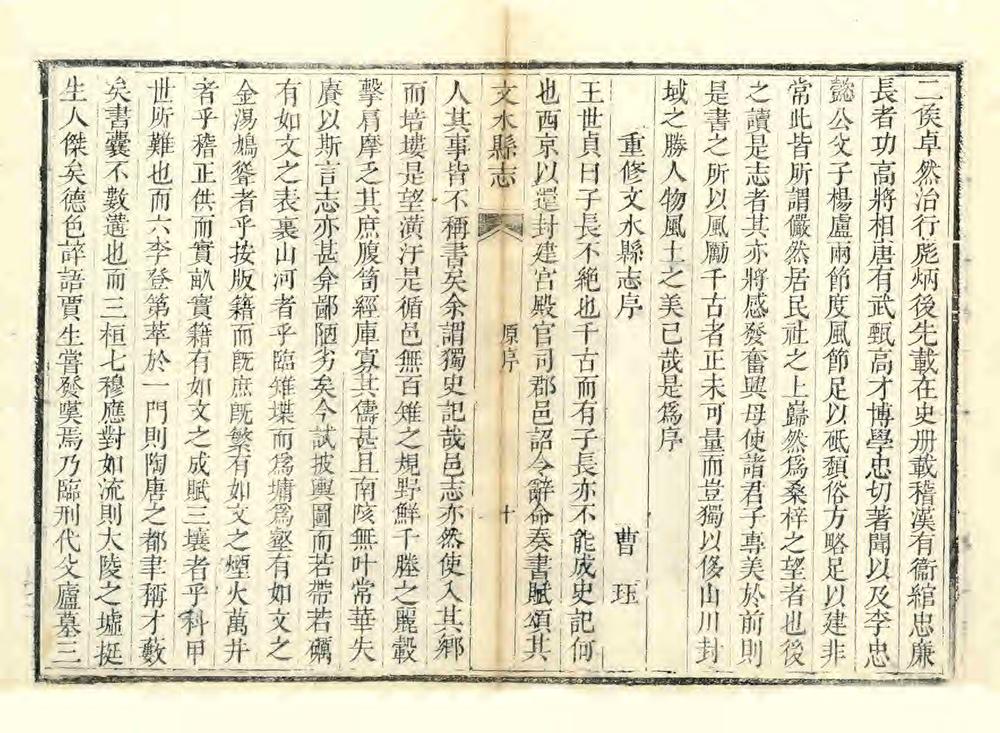 二侯卓然治行彪炳後先載在史册載稽漢有衞綰忠廉
長者功高將相唐有武甄高才博學忠切著聞以及李忠
懿公父子楊盧兩節度風節足以砥頽俗方略足以建非
常此皆所謂儼然居民社之上巋然爲桑梓之望者也後
之讀是志者其亦將感發奮興毋使諸君子專美於前則
是書之所以風勵千古者正未可量而豈獨以侈山川封
域之勝人物風土之美已哉是爲序
重修文水縣志序 曹珏
王世貞曰子長不絶也千古而有子長亦不能成史記何
也西京以還封建宮殿官司郡邑詔令辭命奏書賦頌其
文水縣志 原序 十
人其事皆不稱書矣余謂獨史記哉邑志亦然使入其鄉
而培塿是望潢汙是循邑無百雉之規野鮮千塍之麗轂
擊肩摩之其庶腹笥經庫寡其儔甚且南陔無叶常華失
賡以斯言志亦甚弇鄙陋劣矣今試披輿圖而若帶若礪
有如文之表裏山河者乎臨雉堞而爲墉爲壑有如文之
金湯鳩聳者乎按版籍而旣庶旣繁有如文之煙火萬井
者乎稽正供而實畝實籍有如文之成賦三壤者乎科甲
世所難也而六李登第萃於一門則陶唐之都聿稱才藪
矣書囊不數遘也而三桓七穆應對如流則大陵之墟挺
生人傑矣德色誶語賈生嘗發嘆焉乃臨刑代父廬墓三